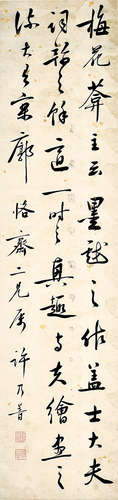 梅花菴主云墨戲之作蓋士大夫
詞翰之餘適一時之真趣与夫繪畫之
流大有寥廓 恪齋二兄属 許乃普